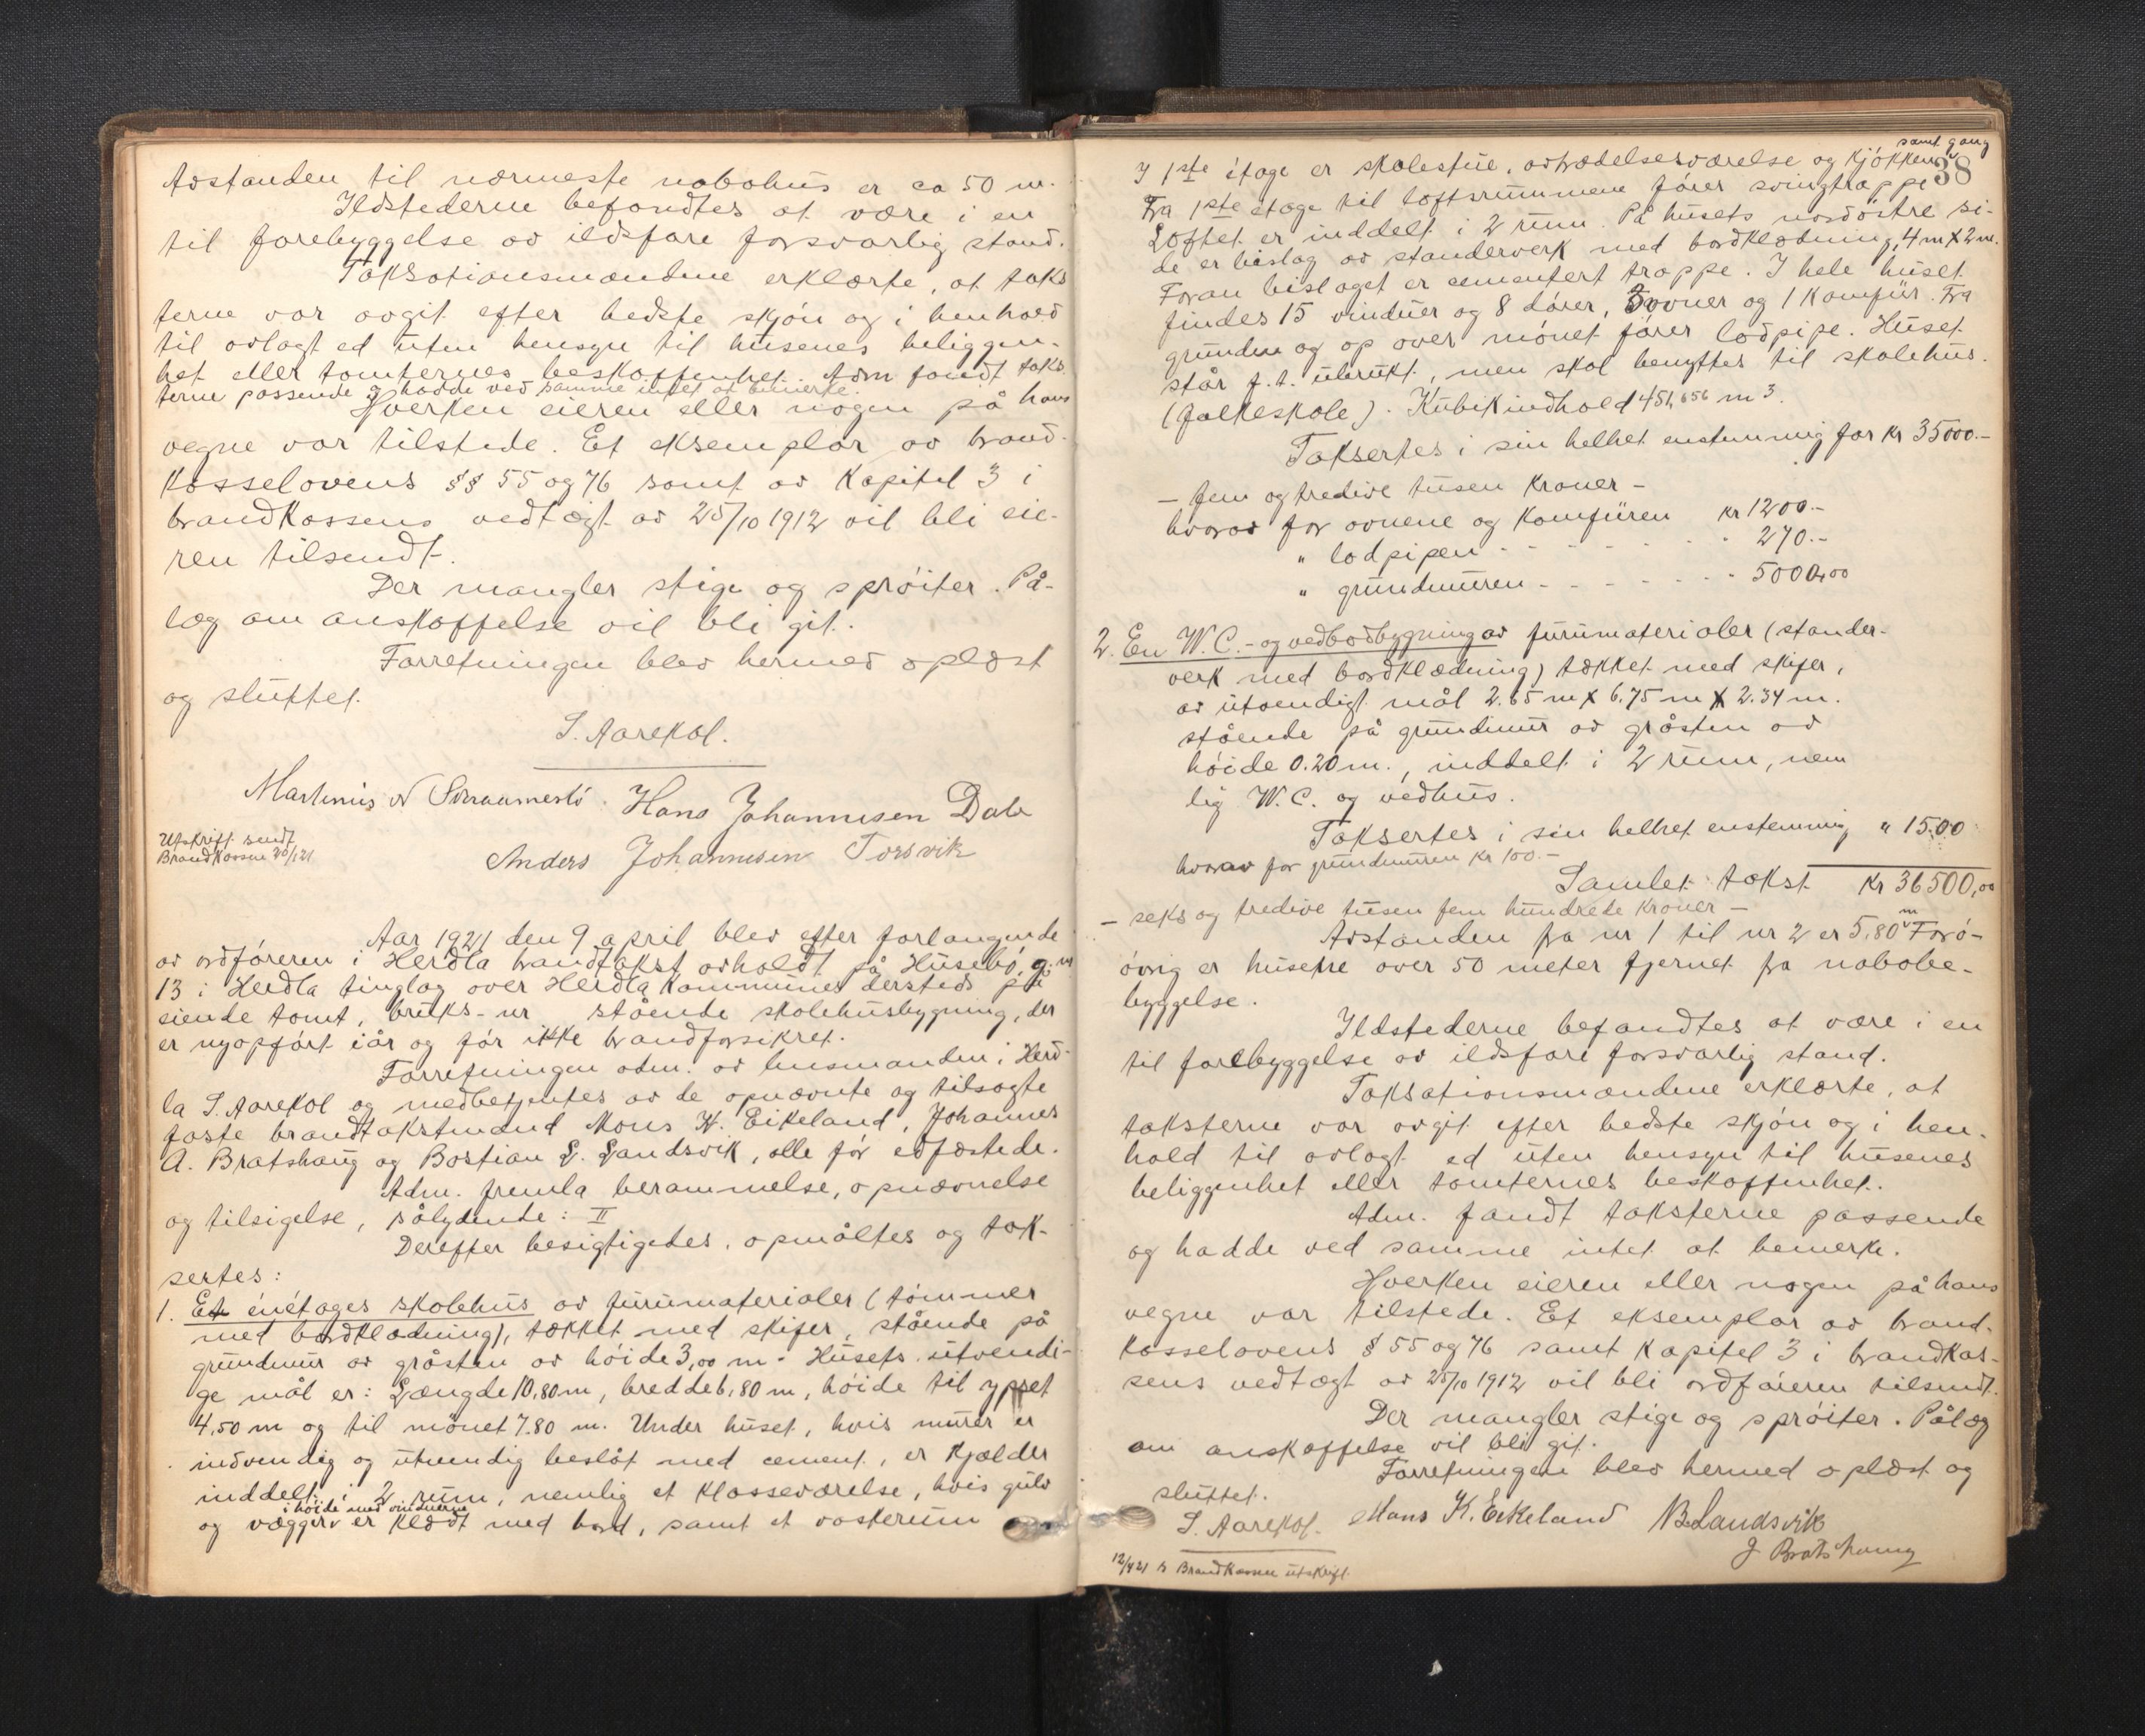 Avstanden til nærmeste nabohus er ca 50 m.
Ildstederne befandtes at være i en
til forebyggelse av ildsfare forsvarlig stand.
Taksationsmændene erklærte, at taks
terne var avgit efter bedste skjøn og i henhold
til avlagt ed uten hensyn til husenes beliggen-
het eller tomternes beskaffenhet. Adm fandt taks
terne passende og hadde ved samme intet at bemerke.
Hverken eieren eller nogen på hans
vegne var tilstede. Et eksemplar av brand-
kasselovens §§ 55 og 76 samt av Kapitel 3 i
brandkassens vedtægt av 25/10 1912 vil bli eie-
ren tilsendt.
Der mangler stige og sprøiter. På-
læg om anskaffelse vil bli git.
Forretningen blev hermed oplæst
og sluttet.
S. Aarekol.
Martinus Hans Johannesen Dale
Utskrift sendt
Brandkassen
Anders Johannesen Torsvik
Aar 1921 den 9 april blev efter forlangende
av ordføreren i Herdla brandtakst avholdt på Husebø, g. nr
13 i Herdla tinglag over Herdla kommunes dersteds på
eiende tomt, bruks-nr stående skolehusbygning, der
er nyopført iår og før ikke brandforsikret.
Forretningen adm. av lensmanden i Herd-
la S. Aarekol og medbetjentes av de opnævnte og tilsagte
faste brandtakstmænd Mons K. Eikeland, Johannes
A. Bratshaug og Bastian L. Landsvik, alle før edfæstede.
Adm. fremla berammelse, opnævnelse
og tilsigelse, sålydende: II
Derefter besigtigedes, opmåltes og tak-
sertes:
1. Et énétages skolehus av furumaterialer (tømmer
med bordklædning), tækket med skifer, stående på
grundmur av gråsten av høide 3,00 m. Husets utvendi-
ge mål er: Længde 10,80 m, bredde 6,80 m, høide til
4,50 m og til mønet 7.80 m. Under huset, hvis murer er
indvendig og utvendig beslåt med cement, er kjælder
inddelt i 2 rum, nemlig et klasseværelse, hvis gulv
i høide med vinduerne
og vægger er klædt med bord, samt et vasterum
38
samt gang
I 1ste étage er skolestue, avtrædelsesværelse og kjøkken
Fra 1ste étage til loftsrummene fører svingtrappe
Loftet er inddelt i 2 rum. På husets nordøstre si-
de er bislag av standerverk med bordklædning, 4 m X 2 m.
Foran bislaget er cementert trappe. I hele huset
findes 15 vinduer og 8 dører, 3 ovner og 1 komfur. Fra
grunden og op over mønet fører lodpipe. Huset
står f. t. ubrukt, men skal benyttes til skolehus.
(folkeskole). Kubikindhold 451,656 m3.
Taksertes i sin helhet enstemmig for kr 35000.-
- fem og tredive tusen kroner -
hvorav for ovnene og komfuren kr 1200.-
" lodpipen - - - - - 270.-
" grundmuren - - - - - 5000,00
2. En W.C.- og vedbodbygning av furumaterialer (stander-
verk med bordklædning) tækket med skifer,
av utvendigt mål 2.65 m X 6.75 m X 2.34 m.
stående på grundmur av gråsten av
høide 0.20 m., inddelt i 2 rum, nem
lig W.C. og vedhus.
Taksertes i sin helhet enstemmig " 1500
hvorav for grundmuren kr 100.-
Samlet takst kr 36500,00
- seks og tredive tusen fem hundrede kroner -
Avstanden fra nr 1 til nr 2 er 5,80 m Forø-
øvrig er husene over 50 meter fjernet fra nabobe-
byggelse.
Ildstederne befandtes at være i en
til forebyggelse av ildsfare forsvarlig stand.
Taksationsmændene erklærte, at
taksterne var avgit efter bedste skjøn og i hen-
hold til avlagt ed uten hensyn til husenes
beliggenhet eller tomternes beskaffenhet.
Adm. fandt taksterne passende
og hadde ved samme intet at bemerke.
Hverken eieren eller nogen på hans
vegne var tilstede. Et eksemplar av brand-
kasselovens § 55 og 76 samt kapitel 3 i brandkas-
sens vedtægt av 25/10 1912 vil bli ordføreren tilsendt.
Der mangler stige og sprøiter. Pålæg
om anskaffelse vil bli git.
Forretningen blev hermed oplæst og
sluttet.
S. Aarekol. Mons K. Eikeland B Landsvik
J Bratshaug
12/4 21 s Brandkassen utskrift.